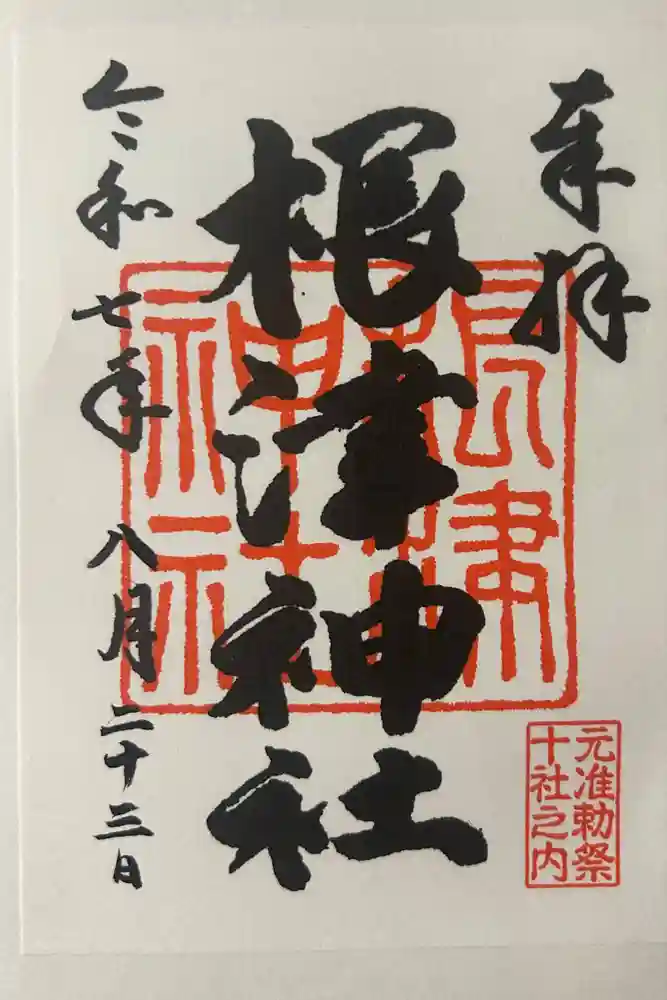 奉拝
根津神社
令和七年八月二十三日
根津
神社
元准勅祭
十社之内